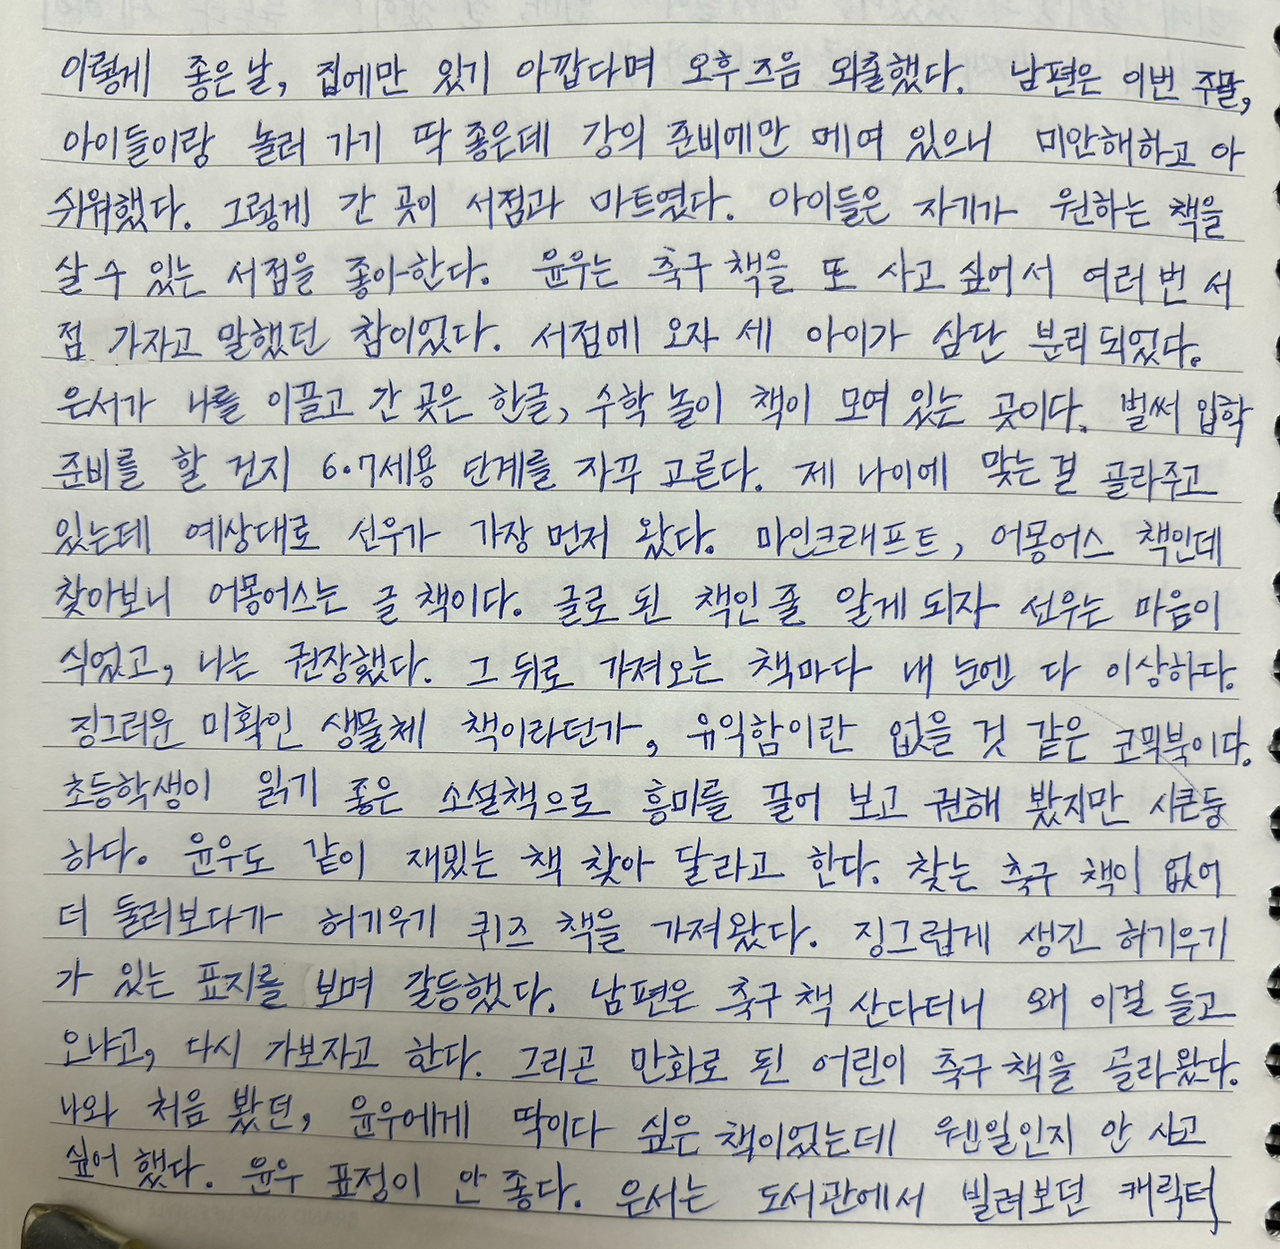 이렇게 좋은 날, 집에만 있기 아깝다며 오후즈음 외출했다. 남편은 이번 주말,
아이들이랑 놀러 가기 딱 좋은데 강의 준비에만 메여 있으니 미안해하고 아
쉬워했다. 그렇게 간 곳이 서점과 마트였다. 아이들은 자기가 원하는 책을
살 수 있는 서점을 좋아한다. 윤우는 축구 책을 또 사고 싶어서 여러 번 서
점 가자고 말했던 참이었다. 서점에 오자 세 아이가 삼단 분리되었다.
은서가 나를 이끌고 간 곳은 한글, 수학 놀이 책이 모여 있는 곳이다. 벌써 입학
준비를 할 건지 6·7세용 단계를 자꾸 고른다. 제 나이에 맞는 걸 골라주고
있는데 예상대로 선우가 가장 먼저 왔다. 마인크래프트, 어몽어스 책인데
찾아보니 어몽어스는 글 책이다. 글로 된 책인 줄 알게 되자 선우는 마음이
식었고, 나는 권장했다. 그 뒤로 가져오는 책마다 내 눈엔 다 이상하다.
징그러운 미확인 생물체 책이라던가, 유익함이란 없을 것 같은 코믹북이다.
초등학생이 읽기 좋은 소설책으로 흥미를 끌어 보고 권해 봤지만 시큰둥
하다. 윤우도 같이 재밌는 책 찾아 달라고 한다. 찾는 축구 책이 없어
더 둘러보다가 허기우기 퀴즈 책을 가져왔다. 징그럽게 생긴 허기우기
가 있는 표지를 보며 갈등했다. 남편은 축구 책 산다더니 왜 이걸 들고
오냐고, 다시 가보자고 한다. 그리곤 만화로 된 어린이 축구 책을 골라왔다.
나와 처음 봤던, 윤우에게 딱이다 싶은 책이었는데 웬일인지 안 사고
싶어 했다. 윤우 표정이 안 좋다. 은서는 도서관에서 빌려보던 캐릭터